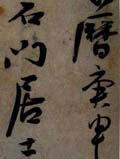 曆庚申
石門居士